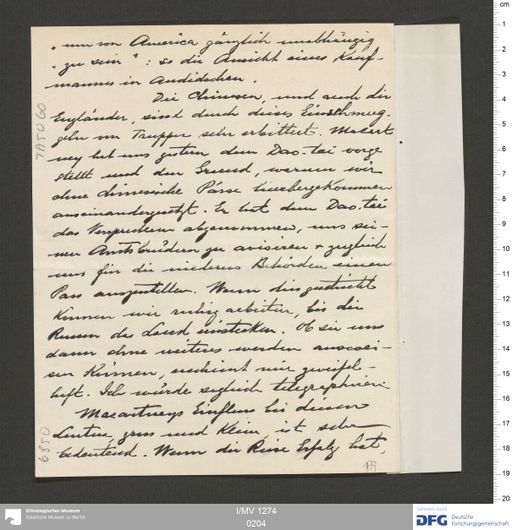 „ um von America gänzlich unabhängig
„ zu sein “ : so die Ansicht eines Kauf-
mannes in Andidschan.
Die Chinesen, und auch die
Engländer, sind durch dieses Einschmug-
geln von Truppen sehr erbittert. Macart
ney hat uns gestern dem Dao-tai vorge
stellt und den Grund, warum wir
ohne chinesische Pässe hierübergekommen
auseinandergesetzt. Er hat dem Dao-tai
das Versprechen abgenommen, uns sei-
nen Amtsbrüdern zu avisieren + zugleich
uns für die niederen Behörden einen
Pass auszustellen. Wenn dies geschieht
können wir ruhig arbeiten, bis die
Russen das Land einstecken. Ob sie uns
dann ohne weiteres werden auswei-
sen können, erscheint mir zweifel-
haft. Ich würde sogleich telegraphieren
Macartneys Einfluss bei diesen
Leuten, gross und klein ist sehr
bedeutend. Wenn die Reise Erfolg hat,
7A5060
6850
Ethnologisches Museum
Staatliche Museen zu Berlin
I/MV 1274
0204
Gefördert durch
DFG
Deutsche
Forschungsgemeinschaft
cm
1
2
3
4
5
6
7
8
9
10
11
12
13
14
15
16
17
18
19
20